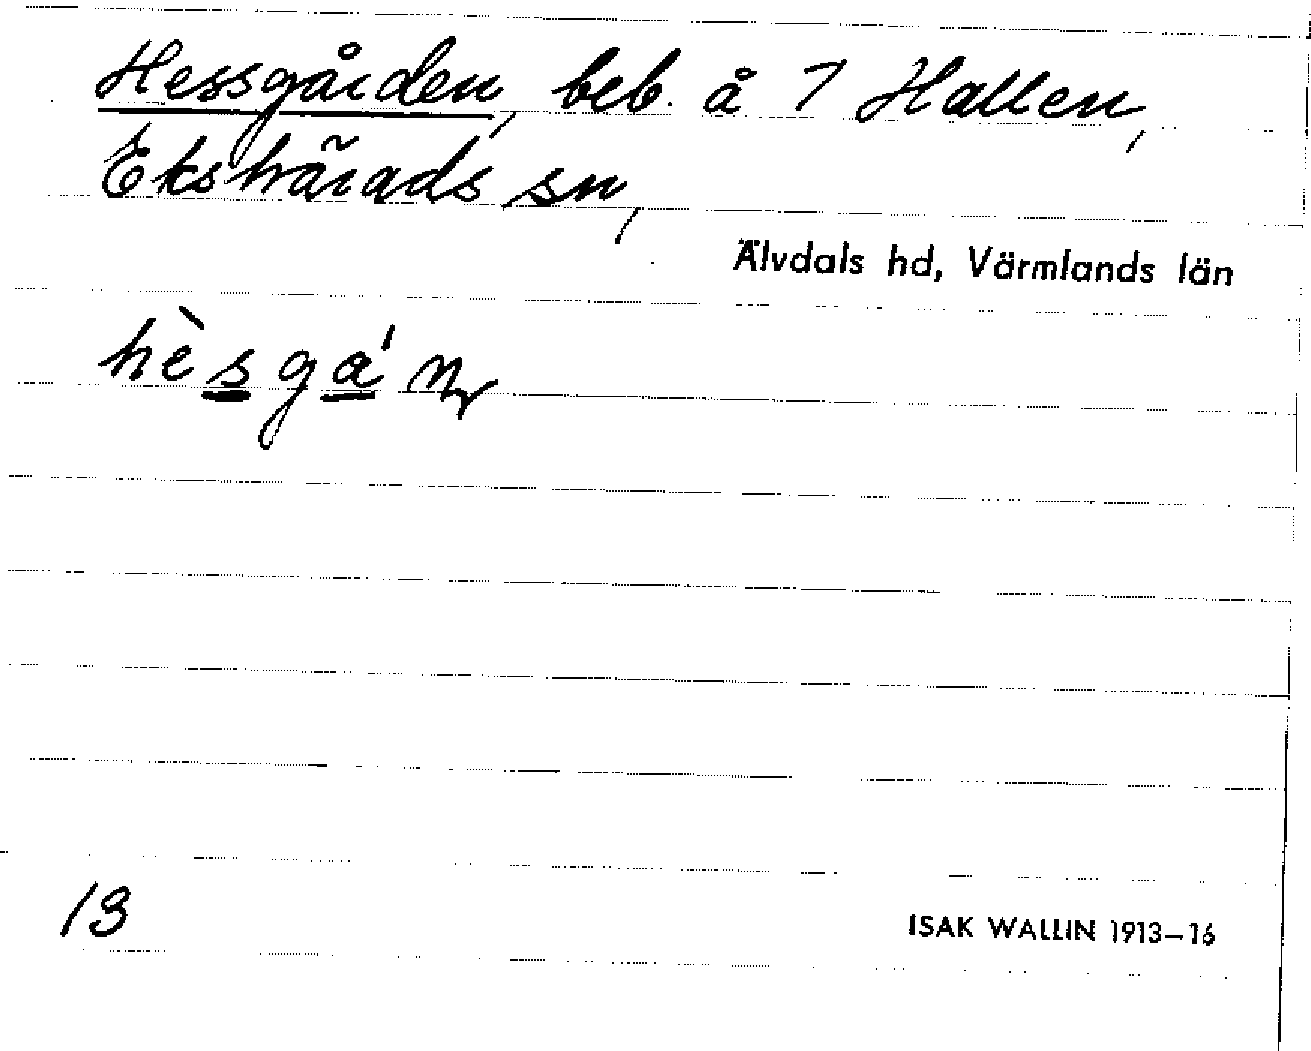 Hessgården, beb. å 7 Hallen,
Ekshärads sn,
Älvdals hd, Värmlands län
hèsgá'ɳ
13
ISAK WALLIN 1913–16